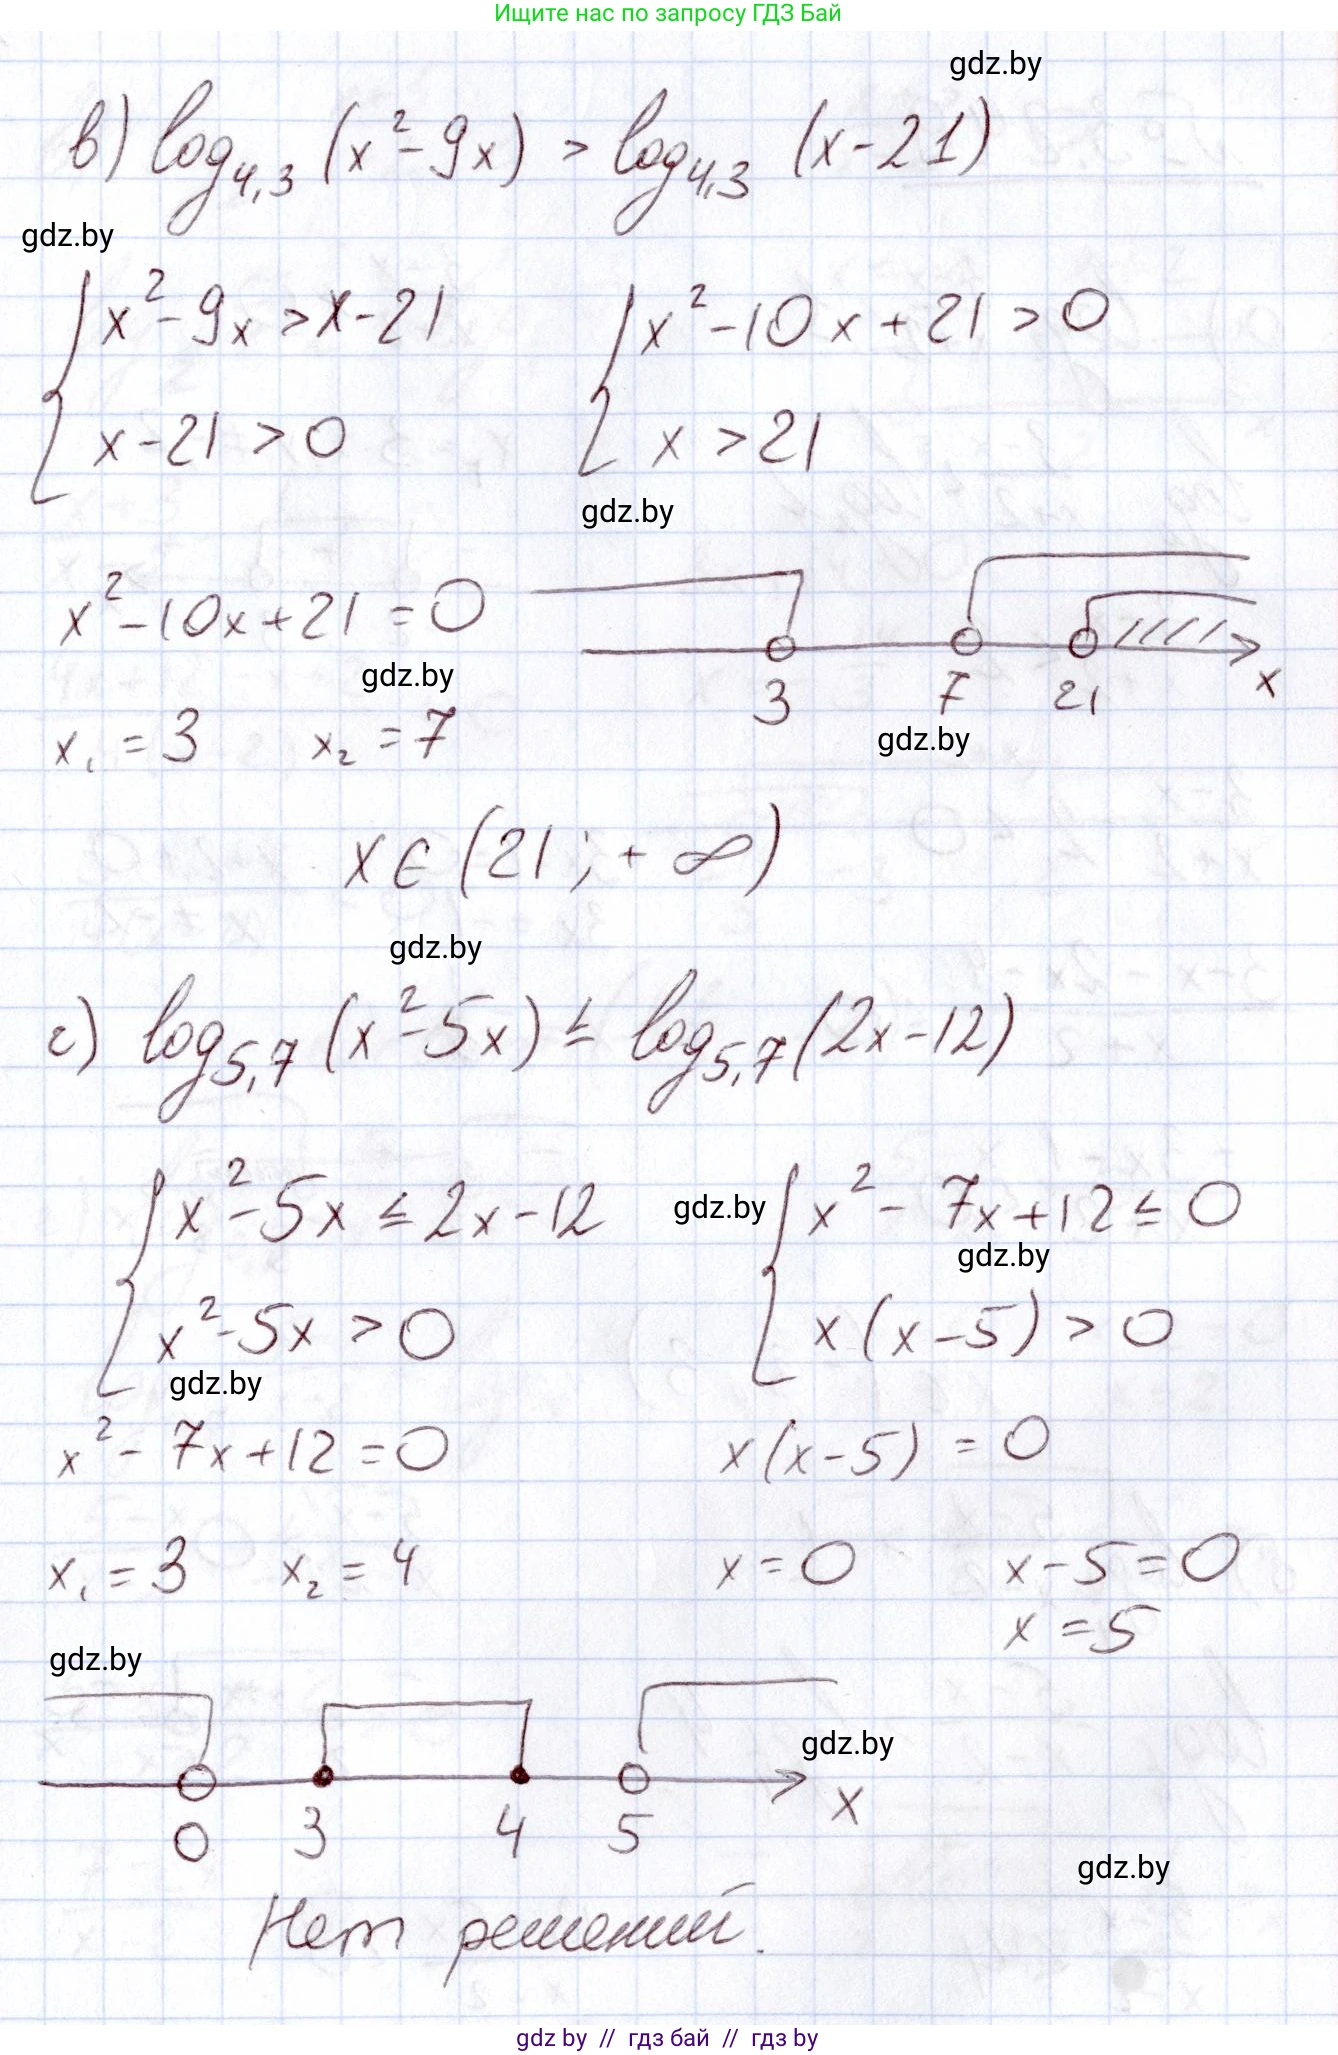 Ищите нас по запросу ГДЗ Бай
gdz.by
в) log₄,₃ (x² - 9x) > log₄,₃ (x - 21)
gdz.by
{ x² - 9x > x - 21 { x² - 10x + 21 > 0
x - 21 > 0 x > 21
gdz.by
x² - 10x + 21 = 0
gdz.by
3 7 21 x
gdz.by
x₁ = 3 x₂ = 7
x ∈ (21; + ∞)
gdz.by
г) log₅,₇ (x² - 5x) ≤ log₅,₇ (2x - 12)
{ x² - 5x ≤ 2x - 12 gdz.by { x² - 7x + 12 ≤ 0
gdz.by
x² - 5x > 0 x(x - 5) > 0
gdz.by
x² - 7x + 12 = 0 x(x - 5) = 0
x₁ = 3 x₂ = 4 x = 0 x - 5 = 0
x = 5
gdz.by
gdz.by
0 3 4 5 x
gdz.by
Нет решений.
gdz by // гдз бай // гдз by